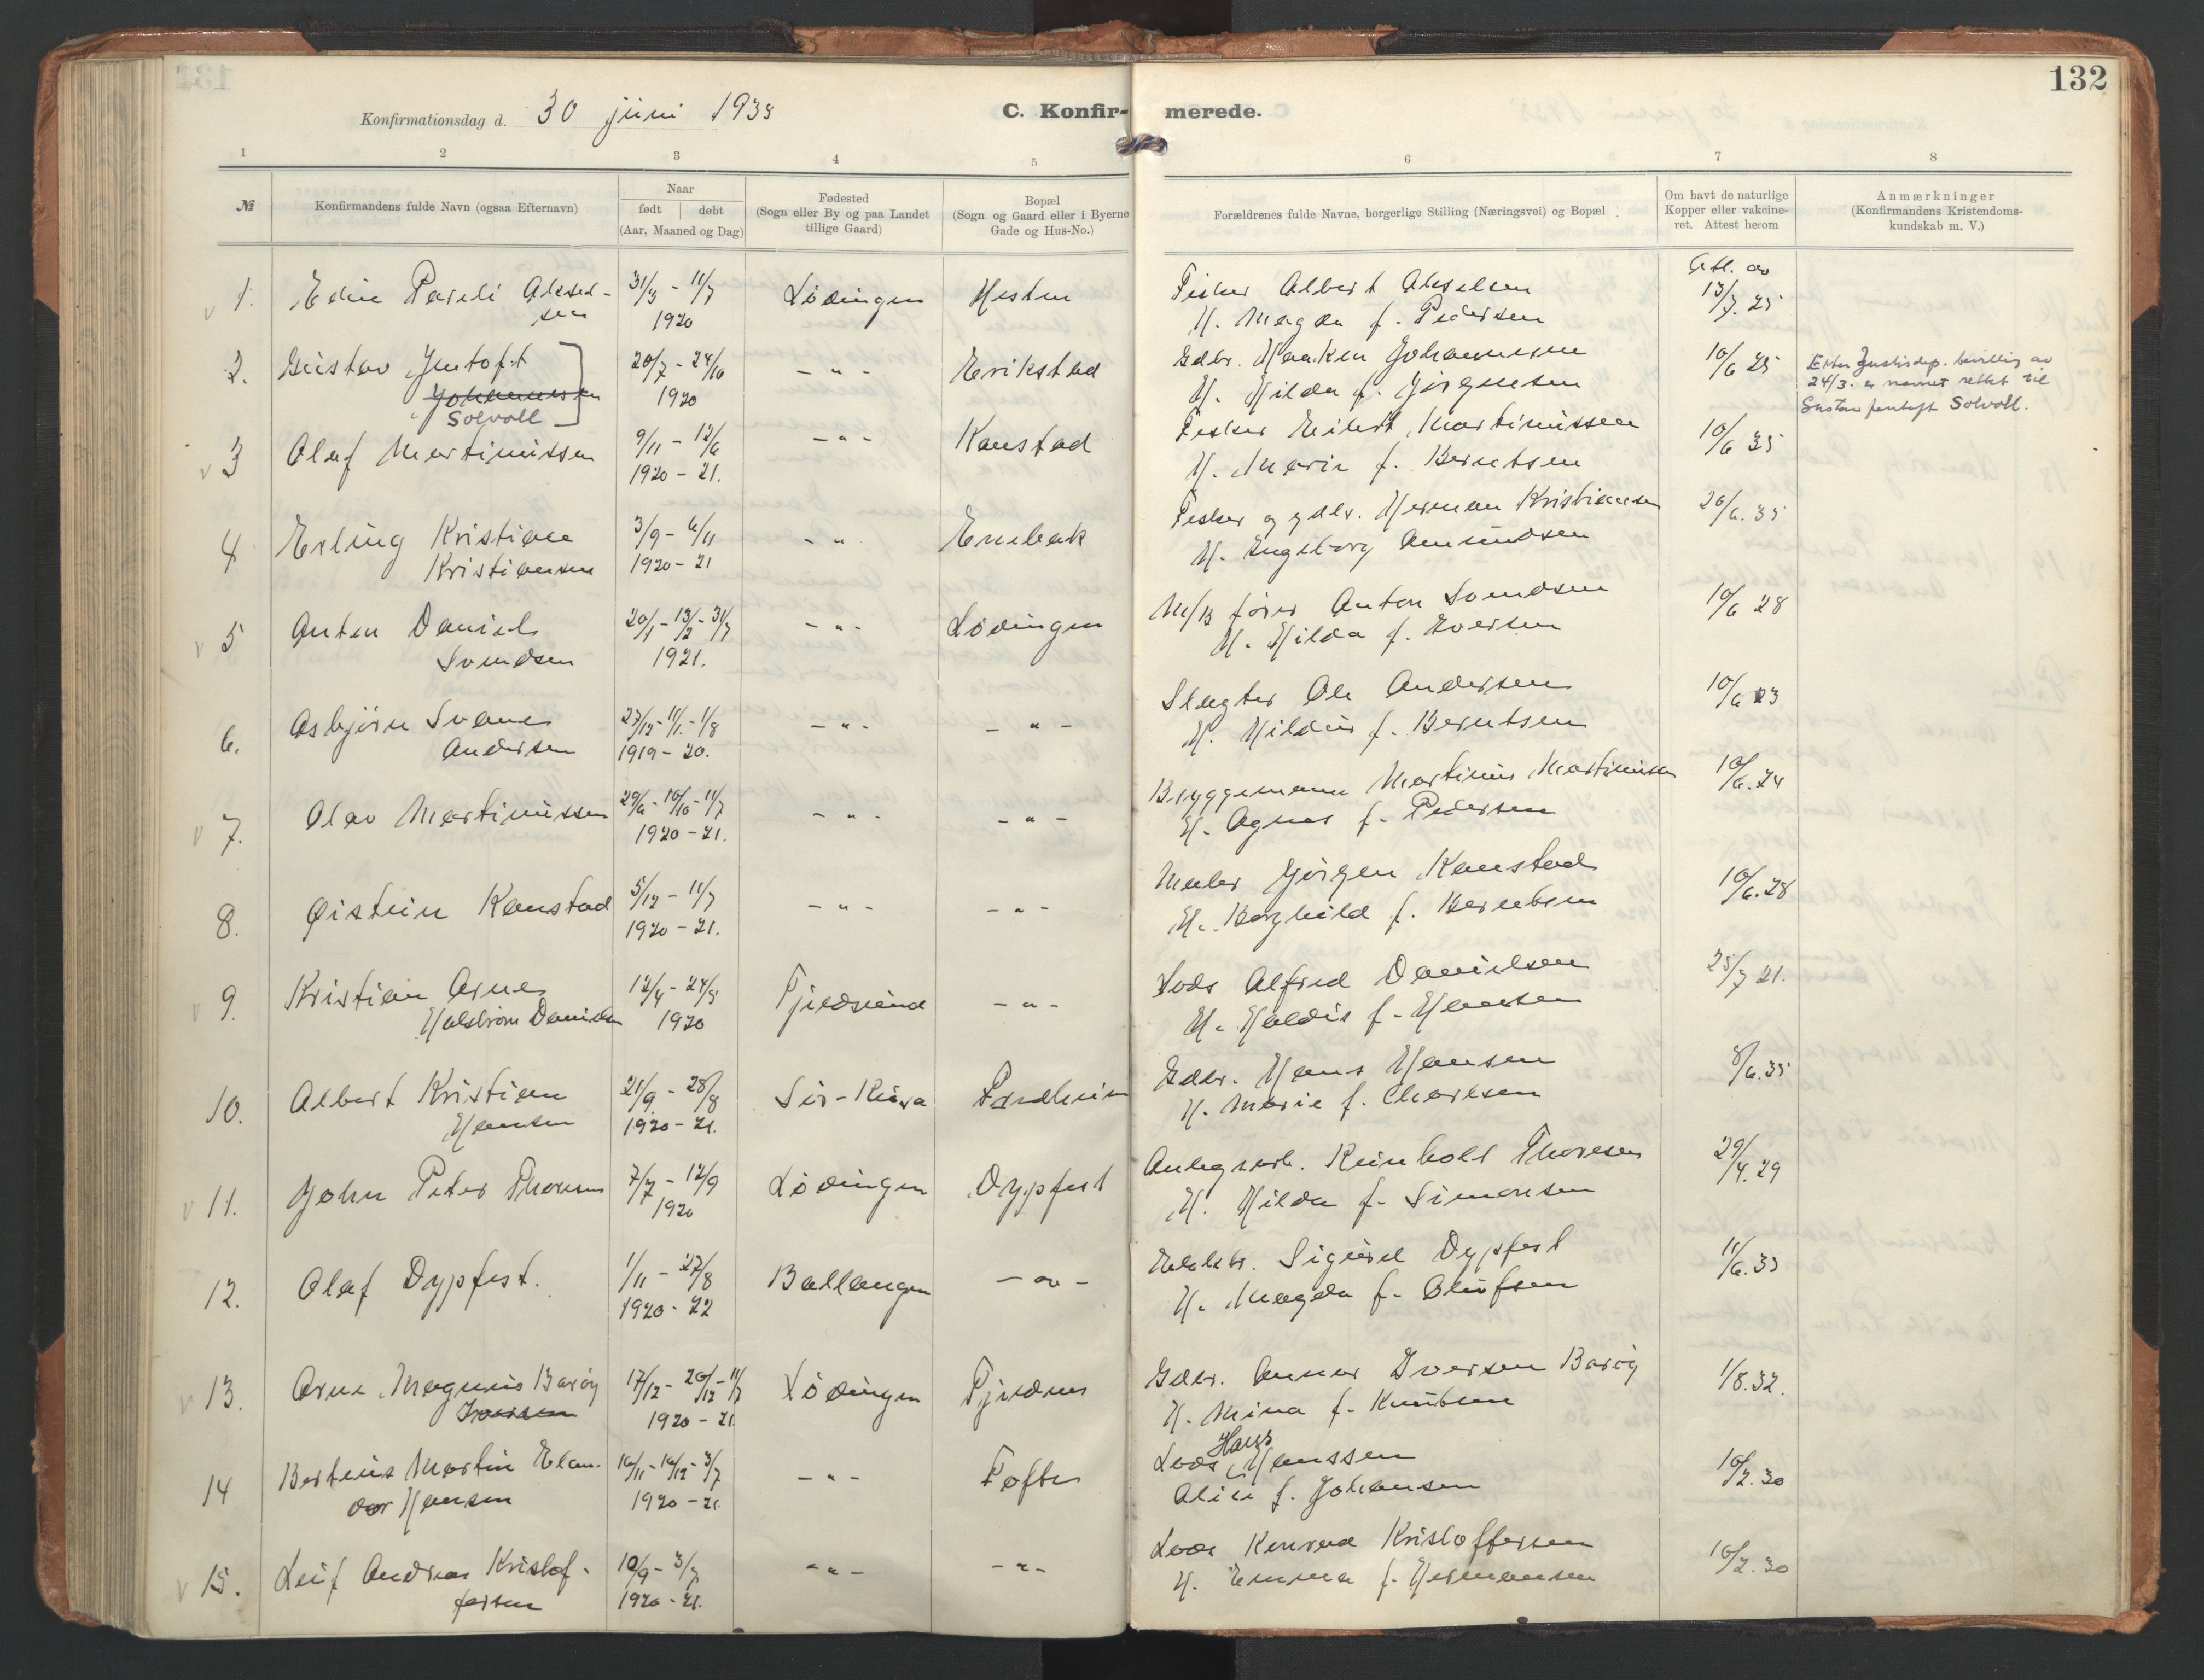 132
Konfirmationsdag d. 30 juni 1935
C. Konfirmerede.
1 2 3 4 5 6 7 8
№
Konfirmandens fulde Navn (ogsaa Efternavn)
Naar
født | døbt
(Aar, Maaned og Dag)
Fødested
(Sogn eller By og paa Landet
tillige Gaard)
Bopæl
(Sogn og Gaard eller i Byerne
Gade og Hus-No.)
Forældrenes fulde Navne, borgerlige Stilling (Næringsvei) og Bopæl
Om havt de naturlige
Kopper eller vakcine-
ret. Attest herom
Anmærkninger
(Konfirmandens Kristendoms-
kundskab m. V.)
1. Edin Pareli Aksel- 31/3 - 11/7 Lødingen Hesten Fisker Albert Akselsen Att. av
sen 1920 H. Magda f. Pedersen 13/7.25
2. Gustav Jentoft 20/7 - 24/10 - " - Erikstad Gdbr. Haaken Johannesen 10/6 25
Johannessen 1920 H. Hilda f. Jørgensen
Solvoll
Efter Justisdep. bevilling av
24/3. er navnet rettet til
Gustav Jentoft Solvoll.
3 Olaf Martinussen 9/11 - 12/6 - " - Kanstad Fisker Eilert Martinussen 10/6 35
1920 - 21. H. Marie f. Berntsen
4 Erling Kristian 3/9 - 6/11 - " - Enebak Fisker og gdbr. Herman Kristiansen 26/6.35
Kristiansen 1920 - 21 H. Ingeborg Amundsen
5 Anton Daniel 20/1 - 13/2 - 31/7 - " - Lødingen M/B fører Anton Svendsen 10/6 28
Svendsen 1921. H. Hilda f. Iversen
6. Asbjørn Svanes 27/12 - 11/1 - 1/8 - " - - " - Slagter Ole Andersen 10/6 23
Andersen 1919 - 20. H. Hildur f. Berntsen
7. Olav Martinussen 29/6 - 10/10 - 11/7 - " - - " - Bryggemann Martinus Martinussen 10/6.24
1920 - 21. H. Agnes f. Pedersen
8. Øistein Kanstad 5/12 - 11/7 - " - - " - Maler Jørgen Kanstad 10/6.28
1920 - 21. H. Borghild f. Berntsen
9. Kristian Arne 12/4 - 24/5 Fjeldsund - " - Lods Alfred Danielsen 25/7 21.
Halstrøm Danielsen 1920 H. Haldis f. Hansen
10. Albert Kristian 21/9 - 28/8 Sør-Reisa Gdbr. Hans Hansen 8/6.35
Hansen 1920 - 21. H. Marie f. Charlsen
11. John Peter Thoresen 7/7 - 12/9 Lødingen Dypfest Anlegsarb. Reinholt Thoresen 29/4.29
1920 H. Hilda f. Simonsen
12. Olaf Dypfest. 1/11 - 27/8 Ballangen - " - Sigurd Dypfest 11/6.35
1920 - 22 H. Magda f. Olufsen
13. Arne Magnus Barøy 17/12 - 20/12 - 11/7 Lødingen Fjeldnes Gdbr. Annar Iversen Barøy 1/8.32.
Iversen 1920 - 21. H. Mina f. Knutsen
14 Berteus Martin Elean- 16/11 - 16/12 - 3/7 - " - Tofter Lods Hans Hanssen 10/2.30
dor Hansen 1920 - 21. Alise f. Johansen
15. Leif Andreas Kristof- 10/9 - 3/7 - " - - " - Lods Konrad Kristoffersen 10/2.30
fersen 1920 - 21. H. Emma f. Hermansen